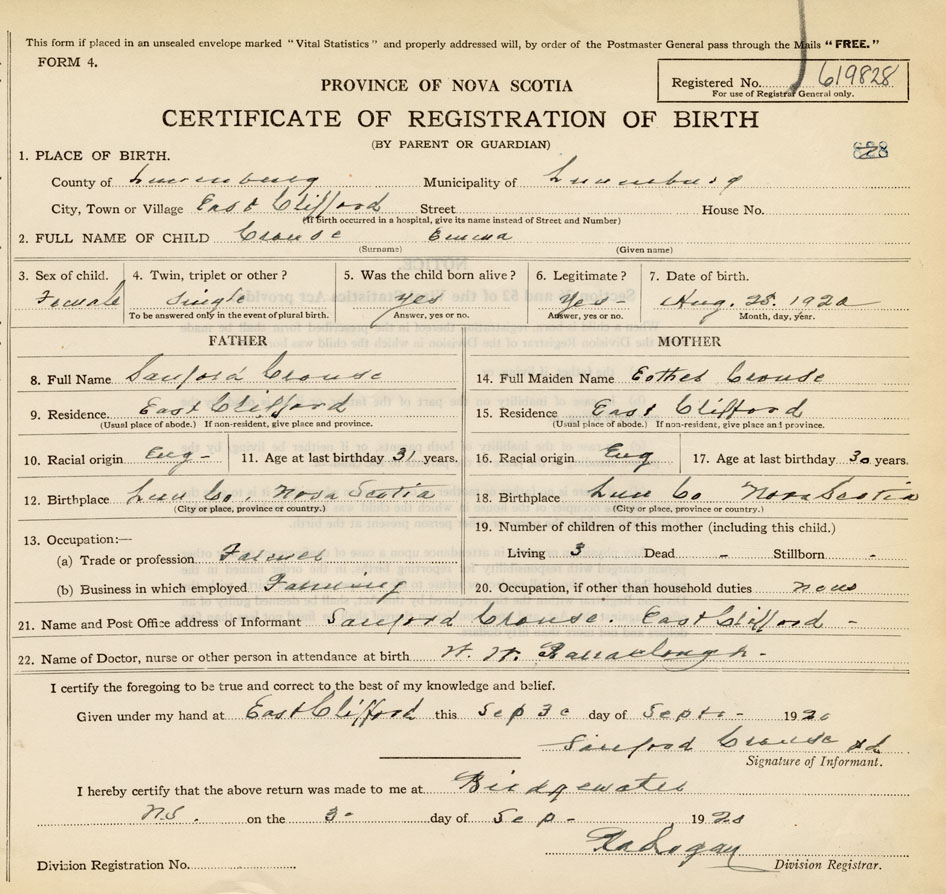 This form if placed in an unsealed envelope marked "Vital Statistics" and properly addressed will, by order of the Postmaster General pass through the Mails "FREE."
FORM 4.
Registered No. 619828
For use of Registrar General only.
PROVINCE OF NOVA SCOTIA
CERTIFICATE OF REGISTRATION OF BIRTH
(BY PARENT OR GUARDIAN)
1. PLACE OF BIRTH.
County of Lunenburg Municipality of Lunenburg
City, Town or Village East Clifford Street House No.
(If birth occurred in a hospital, give its name instead of Street and Number)
2. FULL NAME OF CHILD Crouse Emma
(Surname) (Given name)
3. Sex of child. 4. Twin, triplet or other? 5. Was the child born alive? 6. Legitimate? 7. Date of birth.
Female Single yes yes - Aug. 25. 1920
To be answered only in the event of plural birth. Answer, yes or no. Answer, yes or no. Month, day, year.
FATHER MOTHER
8. Full Name Sanford Crouse 14. Full Maiden Name Esther Crouse
9. Residence. East Clifford 15. Residence East Clifford
(Usual place of abode.) If non-resident, give place and province. (Usual place of abode.) If non-resident, give place and province.
10. Racial origin Eng - 11. Age at last birthday 31 years. 16. Racial origin Eng 17. Age at last birthday 30 years.
12. Birthplace Lun Co. Nova Scotia 18. Birthplace Lun Co Nova Scotia
(City or place, province or country.) (City or place, province or country.)
13. Occupation:— 19. Number of children of this mother (including this child.)
(a) Trade or profession Farmer Living 3 Dead - Stillborn -
(b) Business in which employed Farming 20. Occupation, if other than household duties none
21. Name and Post Office address of Informant Sanford Crouse. East Clifford -
22. Name of Doctor, nurse or other person in attendance at birth
I certify the foregoing to be true and correct to the best of my knowledge and belief.
Given under my hand at East Clifford this Sep 3 day of Sept - 1920
Sanford Crouse
Signature of Informant.
I hereby certify that the above return was made to me at Bridgewater
NS. on the 3- day of Sep - 1920
Division Registration No. Division Registrar.